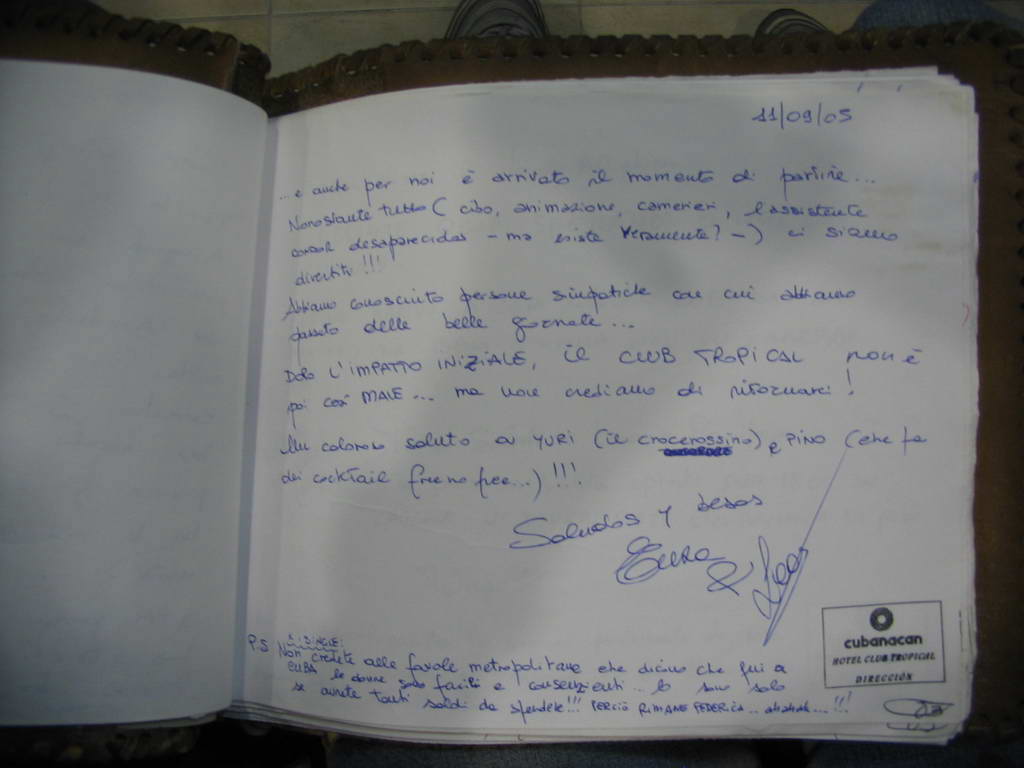 11/09/05
...e anche per noi è arrivato il momento di partire...
Nonostante tutto (cibo, animazione, camerieri, l'assistente
desaparecidos - ma esiste veramente? -) ci siamo
divertiti!!!
Abbiamo conosciuto persone simpatiche con cui abbiamo
passato delle belle giornate...
DOPO L'IMPATTO INIZIALE, il CLUB TROPICAL non è
poi così MALE... ma non crediamo di ritornarci!
Un caloroso saluto a YURI (il crocerossino) e PINO (che fa
dei cocktail free no free...)!!!
Saludos y besos
& Leo
P.S X I SINGLE:
Non credete alle favole metropolitane che dicono che qui a
CUBA le donne sono facili e consenzienti.. lo sono solo
se avete tanti soldi da spendere!!! PERCIÒ RIMANE FEDERICA.. ahahah...!!!
cubanacan
HOTEL CLUB TROPICAL
DIRECCIÓN